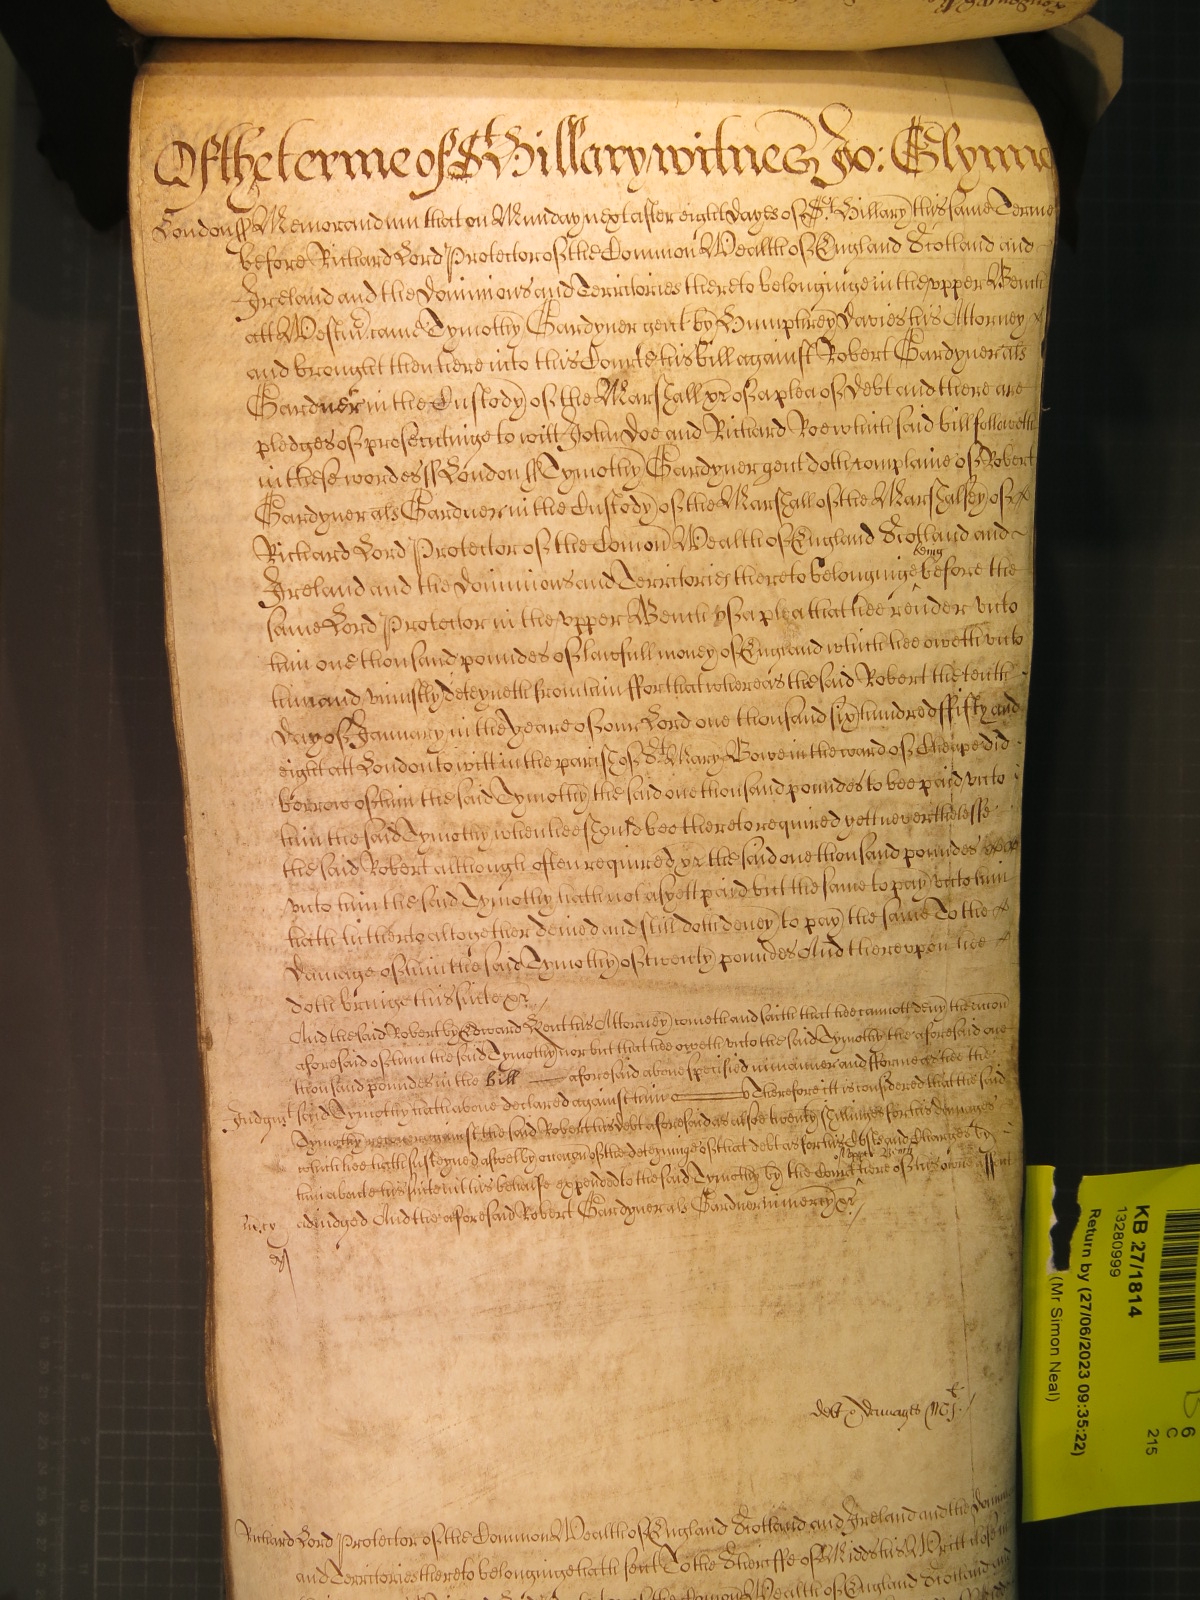 Of the terme of St Hillary witnes Jo: Glynne
London ss Memorandum that on Munday next after eight dayes of St Hillary this same Terme
before Richard Lord Protector of the Common Wealth of England Scotland and
Ireland and the Dominions and Territories thereto belonginge in the vpper Bench
att Westm came Tymothy Gardyner gent by Humphrey Davies his Attorney
and brought then here into this Courte his bill against Robert Gardyner als
Gardner in the Custody of the Marshall &c of a plea of Debt and there are
pledges of prosecutinge to witt John Doe and Richard Roe which said bill followeth
in these wordes ss London ss Tymothy Gardyner gent doth complaine of Robert
Gardyner als Gardner in the Custody of the Marshall of the Marshalsey of
Richard Lord Protector of the Comon Wealth of England Scotland and
Ireland and the Dominions and Territories thereto belonginge being before the
same Lord Protector in the vpper Bench of a plea that hee render vnto
him one thousand poundes of lawfull money of England which hee oweth vnto
him and vniustly deteyneth from him ffor that whereas the said Robert the tenth
day of January in the yeare of our Lord one thousand six hundred ffifty and
eight att London to witt in the parish of St Mary Bowe in the ward of Cheape did
borrow of him the said Tymothy the said one thousand poundes to bee paid vnto
him the said Tymothy when hee should bee thereto required yett neverthelesse
the said Robert although often required &c the said one thousand poundes
vnto him the said Tymothy hath not as yett paid but the same to pay vnto him
hath hitherto altogether denied and still doth deney to pay the same To the
damage of him the said Tymothy of twenty poundes And therevpon hee
doth bringe this suite &c
And the said Robert by Edward Kent his Attorney cometh and saith that hee cannott deny the accon
aforesaid of him the said Tymothy nor but that hee oweth vnto the said Tymothy the aforesaid one
thousand poundes in the bill aforesaid above specified in manner and fforme as hee the
Judgmt said Tymothy hath above declared against him Therefore itt is considered that the said
Tymothy recover against the said Robert his debt aforesaid as alsoe twenty shillinges for his damages
which hee hath susteyned aswell by occasion of the deteyninge of that debt as for his Costs and Charges by
him about his suite in his behalfe expended to the said Tymothy by the Court of vpper Bench here of his owne assent
adiudged And the aforesaid Robert Gardyner als Gardner in mercy &c
mercy
debt & damages
Richard Lord Protector of the Common Wealth of England Scotland and Ireland and the Domin
and Territories thereto belonginge hath sent To the Sheriffe of Midds his Writt close in
Wealth of England Scotland and